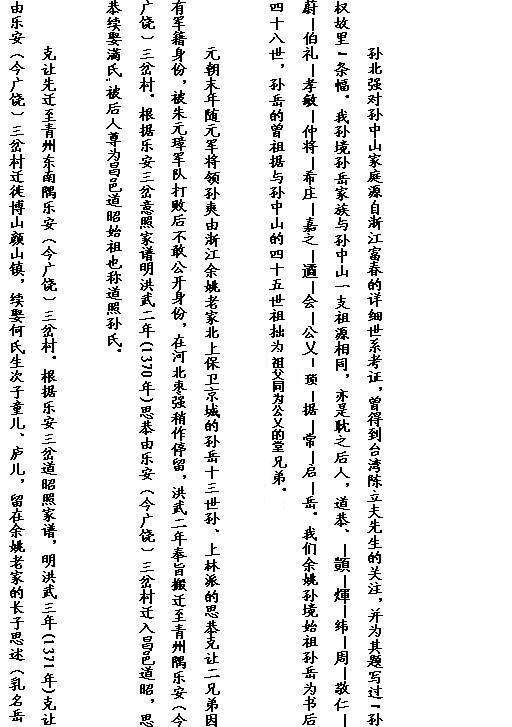 孙北强对孙中山家庭源自浙江富春的详细世系考证，曾得到台湾陈立夫先生的关注，并为其题写过一孙
权故里一条幅。我孙境孙岳家族与孙中山一支祖源相同，亦是耽之后人，道恭、—顗—煇—纬—周—敬仁—
蔚—伯礼—孝敏—仲将—希庄—嘉之—遒—会—公乂—顼—据—常—启—岳。我们余姚孙境始祖孙岳为书后
四十八世，孙岳的曾祖据与孙中山的四十五世祖拙为祖父同为公乂的堂兄弟。
元朝末年随元军将领孙爽由浙江余姚老家北上保卫京城的孙岳十三世孙、上林派的思恭克让二兄弟因
有军籍身份，被朱元璋军队打败后不敢公开身份，在河北枣强稍作停留，洪武二年奉旨搬迁至青州隅乐安（今
广饶）三岔村。根据乐安三岔意照家谱明洪武二年(1370年)思恭由乐安（今广饶）三岔村迁入昌邑道昭，思
恭续娶满氏"被后人尊为昌邑道昭始祖也称道照孙氏。
克让先迁至青州东南隅乐安（今广饶）三岔村。根据乐安三岔道昭照家谱，明洪武三年(1371年)克让
由乐安（今广饶）三岔村迁徙博山颜山镇，续娶何氏生次子童儿、庐儿，留在余姚老家的长子思述（乳名岳